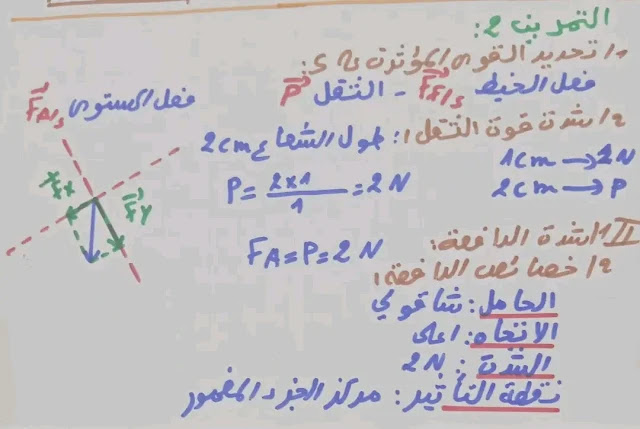 التمرين 2:
1/ تحديد القوى المؤثرة على S:
فعل الخيط F⃗F/S - الثقل P⃗
فعل المستوى F⃗A/S
2/ شدة قوة الثقل: طول الشعاع 2cm
1cm → 1N
2cm → P
P = 2×1/1 = 2N
F⃗x
F⃗y
II 1/ شدة الدافعة:
FA = P = 2N
2/ خصائص الدافعة:
الحامل: شاقولي
الاتجاه: اعلى
الشدة: 2N
نقطة التأثير: مركز الجزء المغمور